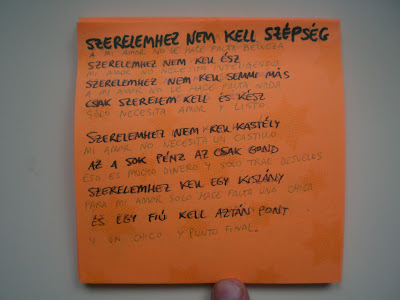 SZERELEMHEZ NEM KELL SZÉPSÉG
A MI AMOR NO LE HACE FALTA BELLEZA
SZERELEMHEZ NEM KELL ÉSZ
MI AMOR NO NECESITA INTELIGENCIA
SZERELEMHEZ NEM KELL SEMMI MÁS
A MI AMOR NO LE HACE FALTA NADA
CSAK SZERELEM KELL ÉS KÉSZ
SÓLO NECESITA AMOR Y LISTO
SZERELEMHEZ NEM KELL KASTÉLY
MI AMOR NO NECESITA UN CASTILLO
AZ A SOK PÉNZ AZ CSAK GOND
ESO ES MUCHO DINERO Y SÓLO TRAE DESVELOS
SZERELEMHEZ KELL EGY KISLÁNY
PARA MI AMOR SOLO HACE FALTA UNA CHICA
ÉS EGY FIÚ KELL AZTÁN PONT
Y UN CHICO Y PUNTO FINAL.